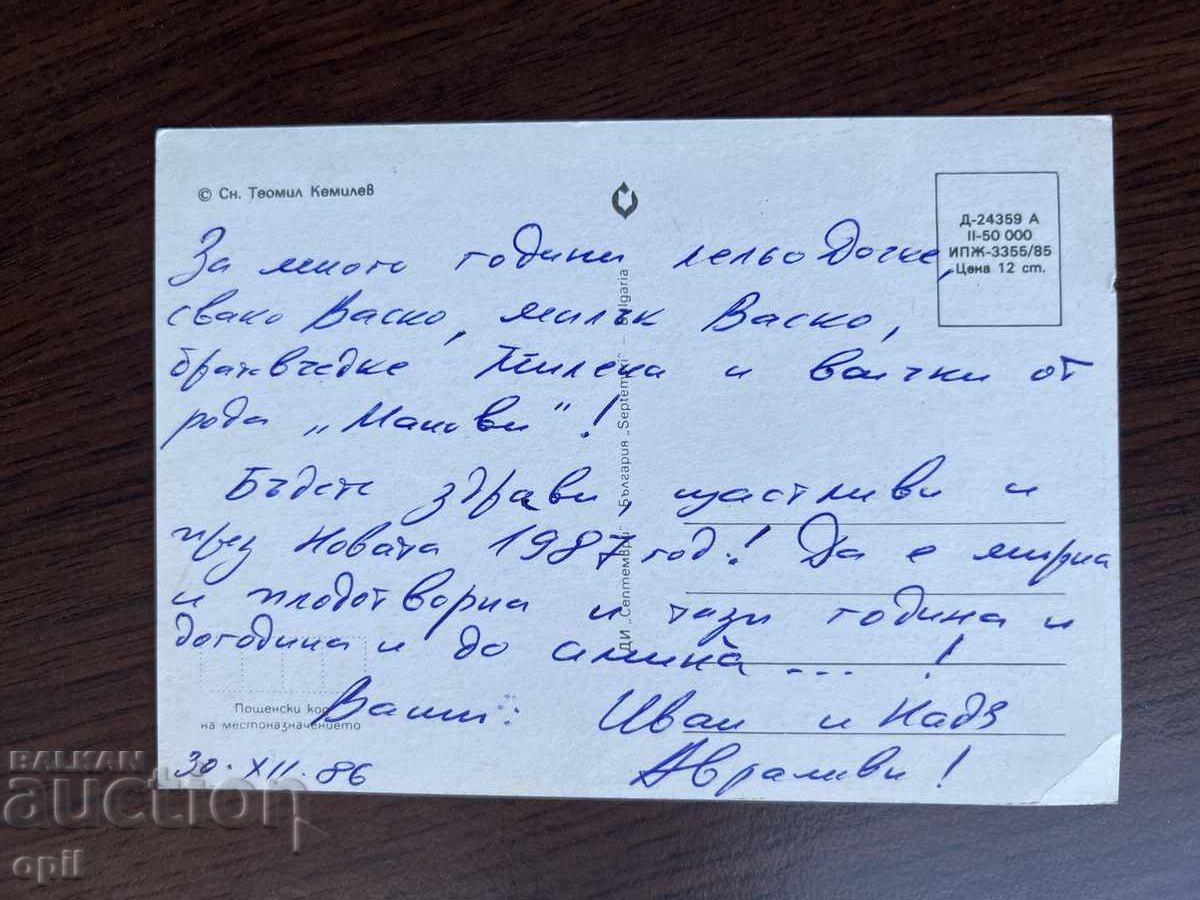 © Сн. Теомил Кемилев
Д-24359 А
II-50 000
ИПЖ-3355/85
Цена 12 ст.
За много години лельо Дочке,
свако Васко, милък Васко,
братвчедке Милена и всички от
рода „Манови"!
Бъдете здрави, щастливи и
през Новата 1987 год.! Да е мирна
и плодотворна и тази година и
догодина и до амина ... !
Ваши: Иван и Надя
Авраливи!
30. XII. 86
ДИ „Септември" България „Septemvri" – Bulgaria
Пощенски код
на местоназначението
BALKAN
auction
opil